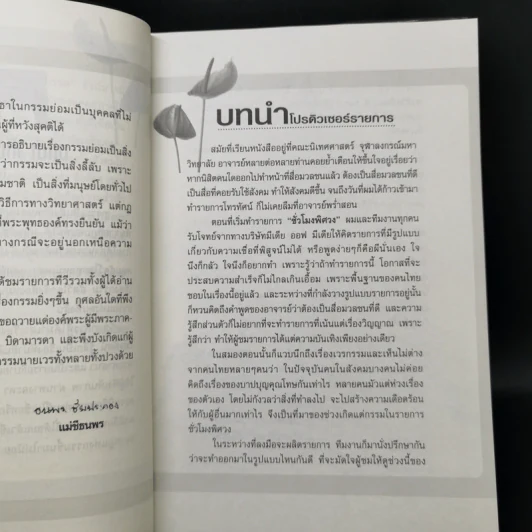 ธาในกรรมย่อมเป็นบุคคลที่ไม่
ผู้ที่หวังสุคติได้
การอธิบายเรื่องกรรมย่อมเป็นสิ่ง
ว่ากรรมจะเป็นสิ่งลี้ลับ เพราะ
มชาติ เป็นสิ่งที่มนุษย์โดยทั่วไป
วิธีการทางวิทยาศาสตร์ แต่กฎ
ที่พระพุทธองค์ทรงยืนยัน แม้ว่า
างกรณีจะอยู่นอกเหนือความ
ด้ชมรายการทีวีรวมทั้งผู้ได้อ่าน
รื่องกรรมยิ่งๆขึ้น กุศลอันใดที่พึง
ขอถวายแด่องค์พระผู้มีพระภาค-
บิดามารดา และพึงบังเกิดแก่
กรรมนายเวรทั้งหลายทั้งปวงด้วย
แม่ชีธนพร
บทนำ โปรดิวเซอร์รายการ
สมัยที่เรียนหนังสืออยู่ที่คณะนิเทศศาสตร์ จุฬาลงกรณ์มหา
วิทยาลัย อาจารย์หลายต่อหลายท่านคอยย้ำเตือนให้ขึ้นใจอยู่เรื่อยว่า
หากนิสิตคนใดออกไปทำหน้าที่สื่อมวลชนแล้ว ต้องเป็นสื่อมวลชนที่ดี
เป็นสื่อที่คอยรับใช้สังคม ทำให้สังคมดีขึ้น จนถึงวันที่ผมได้ก้าวเข้ามา
ทำรายการโทรทัศน์ ก็ไม่เคยลืมที่อาจารย์พร่ำสอน
ตอนที่เริ่มทำรายการ "ชั่วโมงพิศวง" ผมและทีมงานทุกคน
รับโจทย์จากทางบริษัทมีเดีย ออฟ มีเดียให้คิดรายการที่มีรูปแบบ
เกี่ยวกับความเชื่อที่พิสูจน์ไม่ได้ หรือพูดง่ายๆก็คือผีนั่นเอง ใจ
นึงก็กลัว ใจนึงก็อยากทำ เพราะรู้ว่าถ้าทำรายการนี้ โอกาสที่จะ
ประสบความสำเร็จก็ไม่ไกลเกินเอื้อม เพราะพื้นฐานของคนไทย
ชอบในเรื่องนี้อยู่แล้ว และระหว่างที่กำลังวางรูปแบบรายการอยู่นั้น
ก็หวนคิดถึงคำพูดของอาจารย์ว่าต้องเป็นสื่อมวลชนที่ดี และความ
รู้สึกส่วนตัวก็ไม่อยากที่จะทำรายการที่เน้นแต่เรื่องวิญญาณ เพราะ
รู้สึกว่า ทำให้ผู้ชมรายการได้แต่ความบันเทิงเพียงอย่างเดียว
ในสมองตอนนั้นก็แวบนึกถึงเรื่องเวรกรรมและเห็นไม่ต่าง
จากคนไทยหลายๆคนว่า ในปัจจุบันคนในสังคมบางคนไม่ค่อย
คิดถึงเรื่องของบาปบุญคุณโทษกันเท่าไร หลายคนมัวแต่ห่วงเรื่อง
ของตัวเอง โดยไม่กังวลว่าสิ่งที่ทำลงไป จะไปสร้างความเดือดร้อน
ให้กับผู้อื่นมากเท่าไร จึงเป็นที่มาของช่วงเกิดแต่กรรมในรายการ
ชั่วโมงพิศวง
ในระหว่างที่ลงมือจะผลิตรายการ ทีมงานก็มานั่งปรึกษากัน
ว่าจะทำออกมาในรูปแบบไหนกันดี ที่จะมัดใจผู้ชมให้ดูช่วงนี้ของ